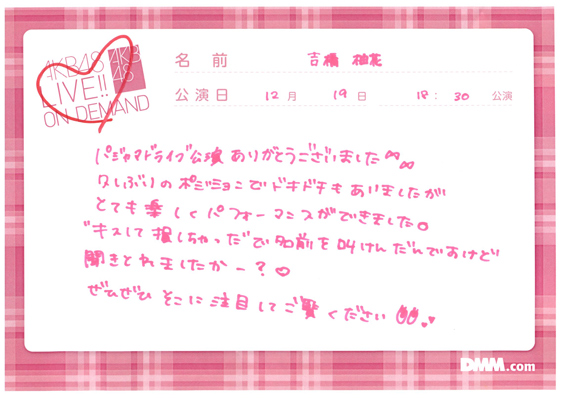 AKB48
LIVE!!
ON DEMAND
AKB
48
名前 吉橋 柚花
公演日 12月 19日 18:30 公演
パジャマドライブ公演ありがとうございました
久しぶりのポジションでドキドキもありましたが
とても楽しくパフォーマンスができました。
"キスして損しちゃった"で名前を叫けんだんですけど
聞きとれましたかー?♡
ぜひぜひそこに注目してご覧ください
DMM.com